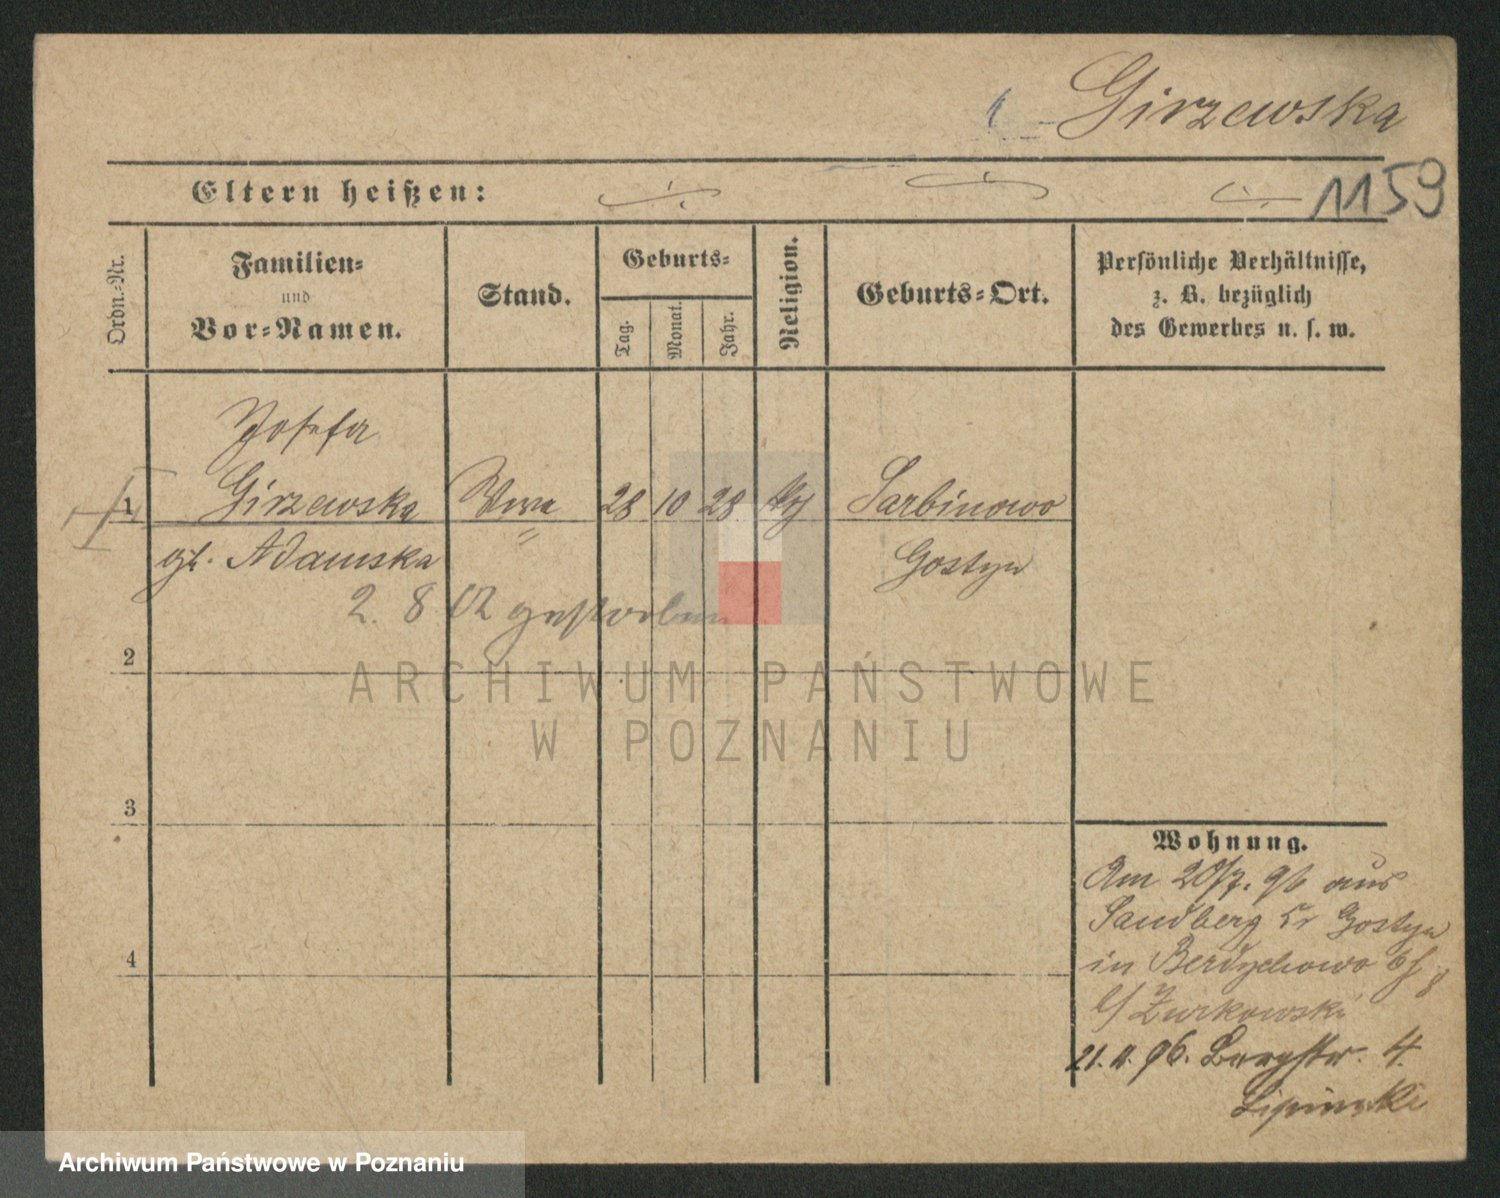 Girzewska
Eltern heißen:
1159
Ordn.-Nr.
Familien-
und
Vor-Namen.
Stand.
Geburts-
Tag.
Monat.
Jahr.
Religion.
Geburts-Ort.
Persönliche Verhältnisse,
z. B. bezüglich
des Gewerbes u. s. w.
Josefa
1 Girzewska Wwe 28 10 28 Sarbinowo
Adamska Gostyn
2. 8 02 gestorben
2
ARCHIWUM PAŃSTWOWE
W POZNANIU
3
4
Wohnung.
Am 20/7. 96 aus
Sandberg Kr Gostyn
in Berdychowo 6
b/ Zurkowski
21. 11. 96. Bergstr. 4.
Lipinski
Archiwum Państwowe w Poznaniu